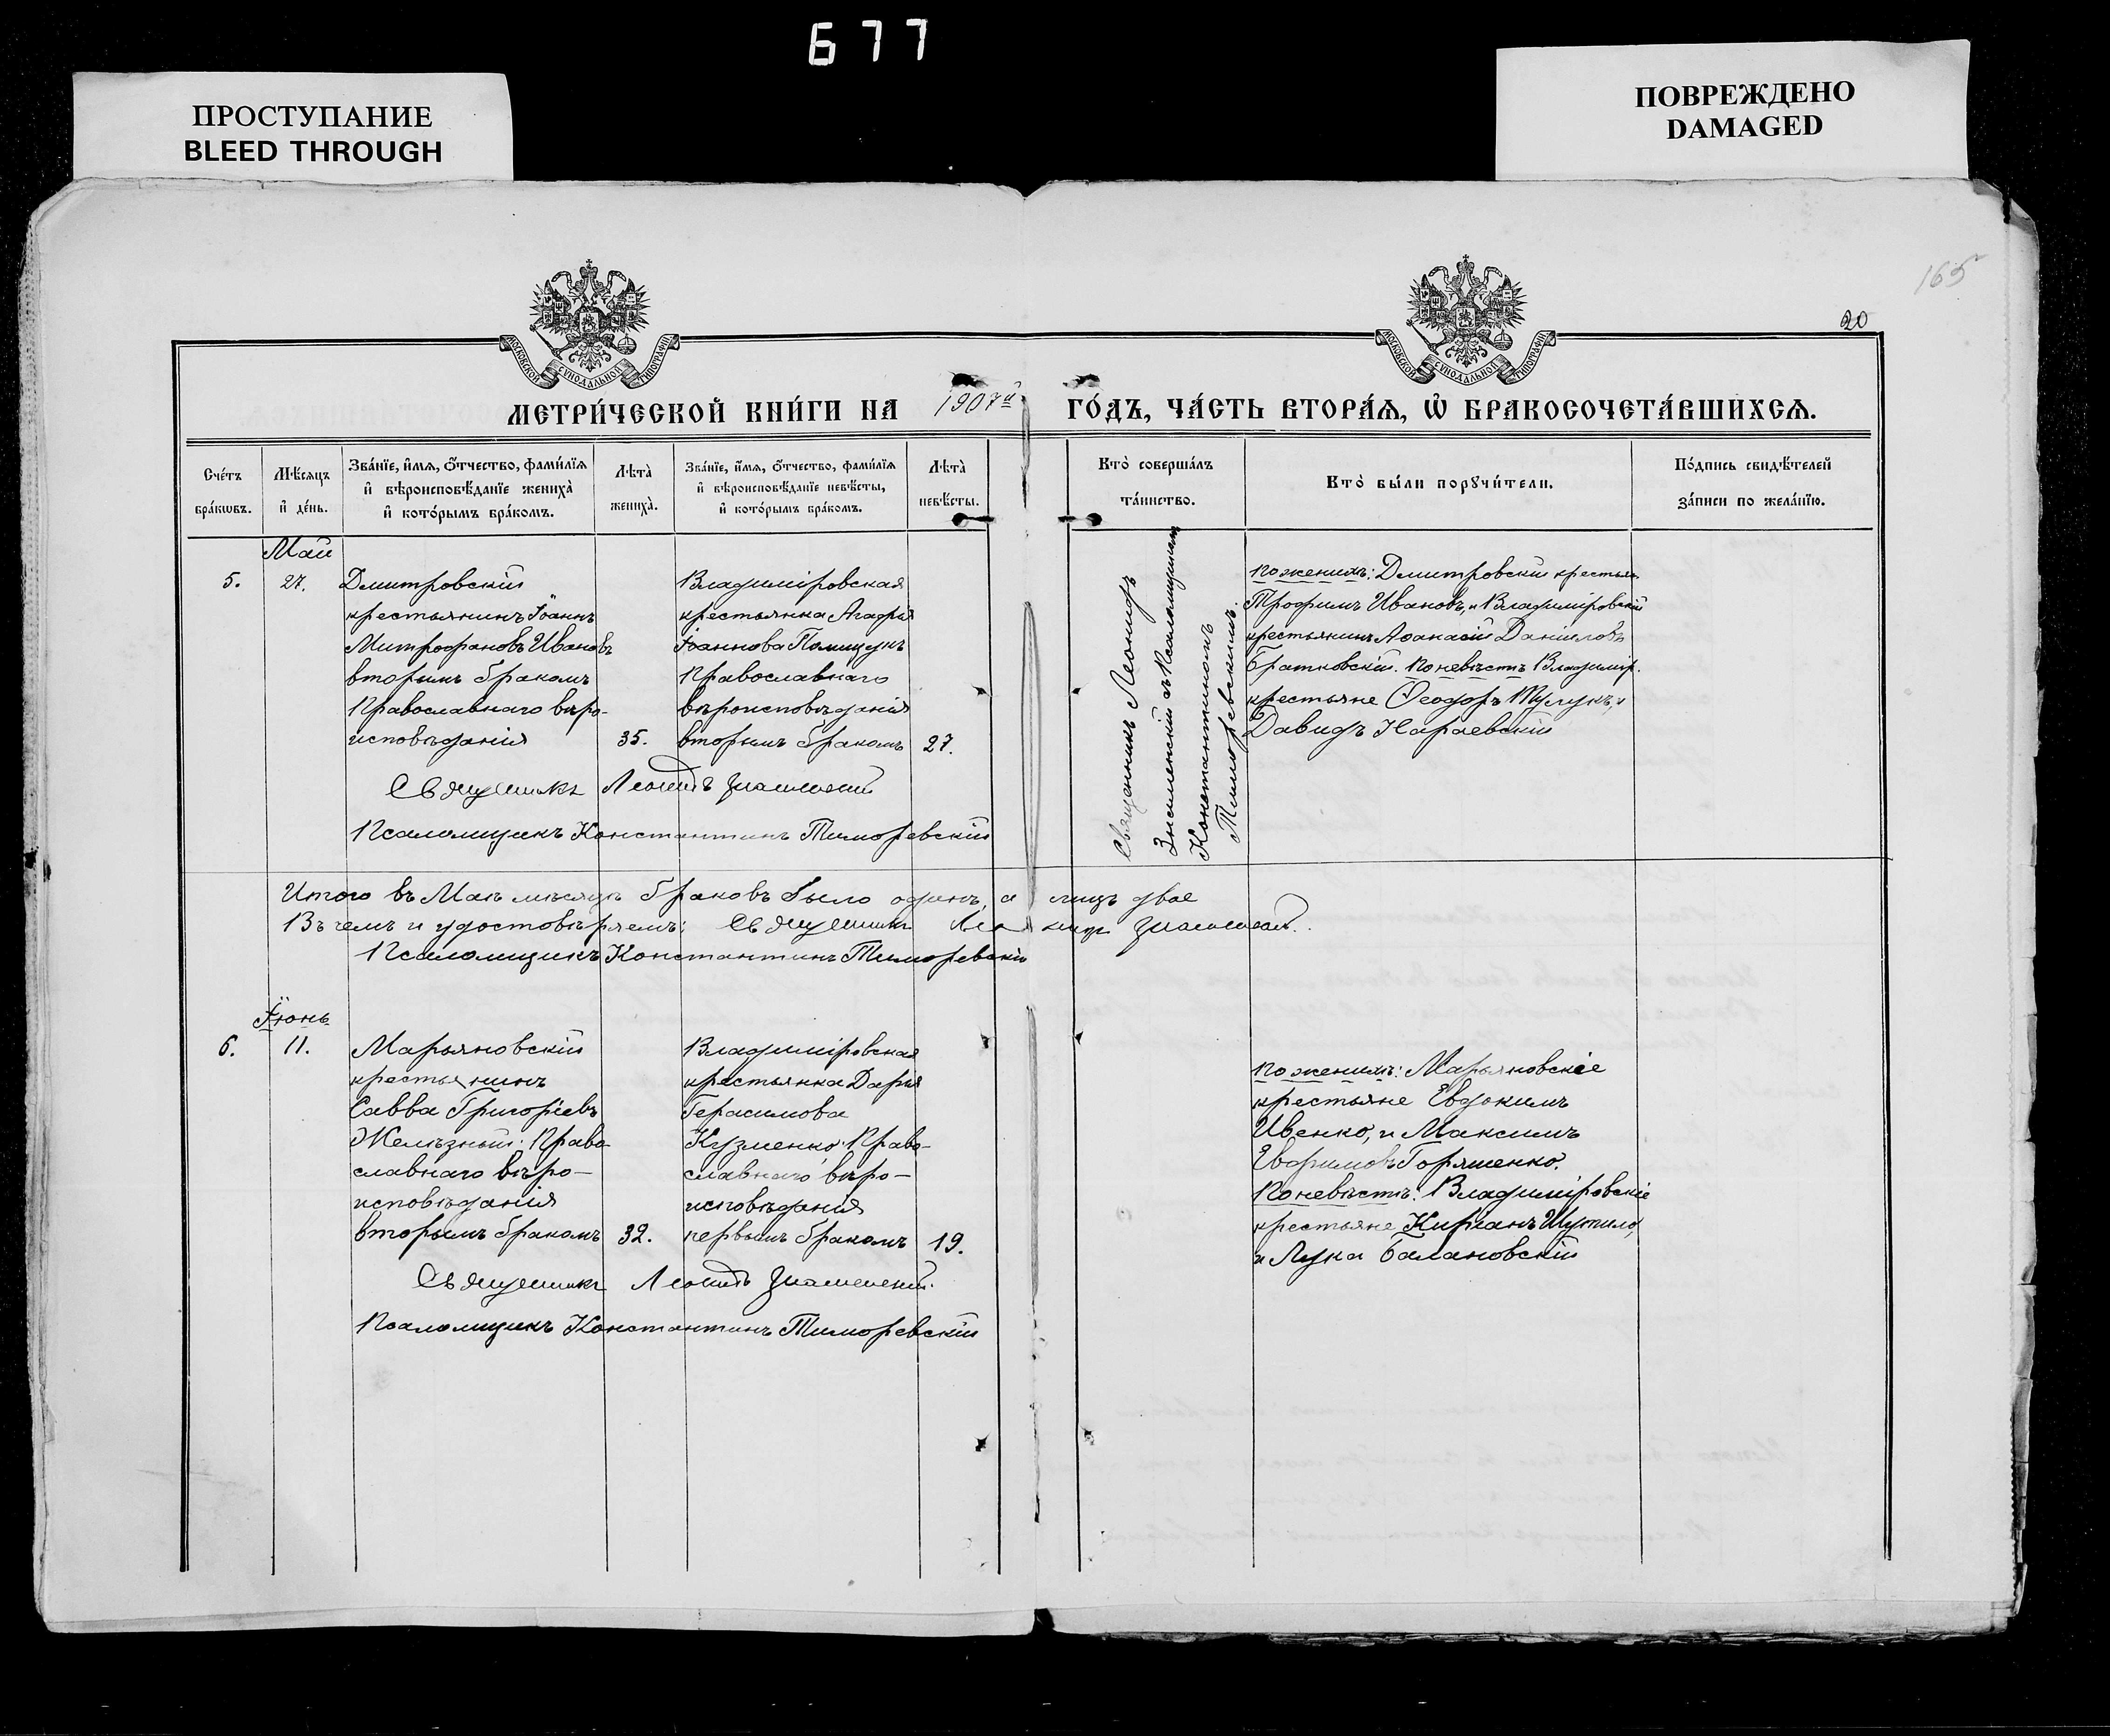 677
ПРОСТУПАНИЕ
BLEED THROUGH
ПОВРЕЖДЕНО
DAMAGED
165
20
МОСКОВСКОЙ СѴНОДАЛЬНОЙ ТИПОГРАФІИ
МОСКОВСКОЙ СѴНОДАЛЬНОЙ ТИПОГРАФІИ
МЕТРИ́ЧЕСКОЙ КНИ́ГИ НА 1907й ГО́ДЪ, ЧА́СТЬ ВТОРА́Ѧ, Ѡ БРАКОСОЧЕТА́ВШИХСѦ.
Сче́тъ
бра́кѡвъ.
Мѣ́сяцъ
и҆ де́нь.
Зва́нїе, и҆́мѧ, ѻ҆́тчество, фами́лїѧ
и҆ вѣроисповѣ́данїе жениха̀
и҆ кото́рымъ бра́комъ.
Лѣта̀
жениха̀.
Зва́нїе, и҆́мѧ, ѻ҆́тчество, фами́лїѧ
и҆ вѣроисповѣ́данїе невѣ́сты,
и҆ кото́рымъ бра́комъ.
Лѣта̀
невѣ́сты.
Кто̀ соверша́лъ
та́инство.
Кто̀ бы́ли порꙋчи́тели.
По́дпись свидѣ́телей
за́писи по жела́нїю.
Май
5.
27.
Дмитровскій
крестьянинъ Іоаннъ
Митрофановъ Ивановъ
вторымъ бракомъ
Православнаго вѣро-
исповѣданія
35.
Владиміровская
крестьянка Агафія
Іоаннова Полищукъ
Православнаго
вѣроисповѣданія
вторымъ бракомъ
27.
Священникъ Леонидъ
Знаменскій съ Псаломщикомъ
Константиномъ
Тиморевскимъ.
По женихѣ: Дмитровскій крестьян.
Трофимъ Ивановъ, и Владиміровскій
крестьянинъ Аѳанасій Даніиловъ
Братковскій. По невѣстѣ Владимір.
крестьяне Ѳеодоръ и
Давидъ Караевскій
Священникъ Леонидъ Знаменскій
Псаломщикъ Константинъ Тиморевскій
Итого въ Маѣ мѣсяцѣ браковъ было одинъ, а лицъ двое
Въ чемъ и удостовѣряемъ: Священникъ Леонидъ Знаменскій.
Псаломщикъ Константинъ Тиморевскій
Іюнь
6.
11.
Марьяновскій
крестьянинъ
Савва Григоріевъ
Желѣзный: Право
славнаго вѣро-
исповѣданія
вторымъ бракомъ
32.
Владиміровская
крестьянка Дарія
Герасимова
Кузменко: Право-
славнаго вѣро-
исповѣданія
первымъ бракомъ
19.
По женихѣ: Марьяновскіе
крестьяне Евдокимъ
Ивенко, и Максимъ
Евфимовъ Горяшенко.
По невѣстѣ: Владиміровскіе
крестьяне Кипріанъ Шутило,
и Лука Балановскій
Священникъ Леонидъ Знаменскій.
Псаломщикъ Константинъ Тиморевскій